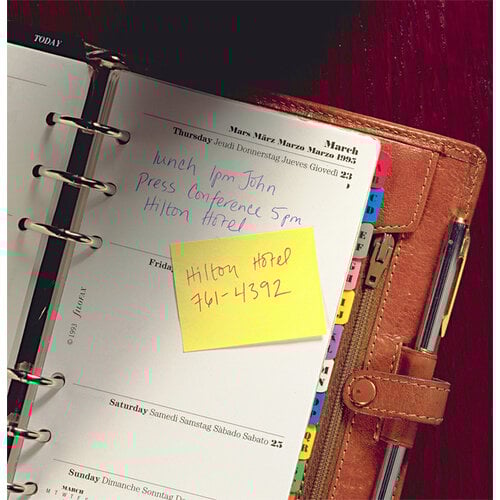 TODAY
March
Mars März Marzo Marzo 1995
Thursday Jeudi Donnerstag Jueves Giovedì 23
lunch 1pm John
Press Conference 5pm
Hilton Hotel
Hilton Hotel
761-4392
© 1993 filofax
Saturday Samedi Samstag Sàbado Sabato 25
Sunday Dimanche Sonntag
MARCH
M T W T F